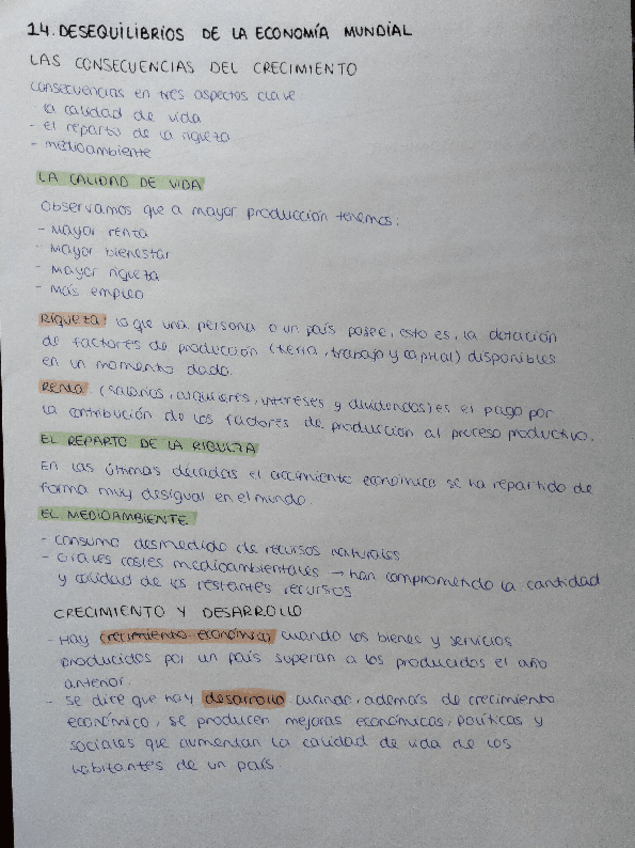 14. DESEQUILIBRIOS DE LA ECONOMÍA MUNDIAL
LAS CONSECUENCIAS DEL CRECIMIENTO
Consecuencias en tres aspectos clave
la calidad de vida
- el reparto de la riqueza
- medioambiente
LA CALIDAD DE VIDA
Observamos que a mayor producción tenemos:
- Mayor renta
- Mayor bienestar
- Mayor riqueza
- Más empleo
Riqueza: lo que una persona o un país posee, esto es, la dotación
de factores de producción (tierra, trabajo y capital) disponibles
en un momento dado.
Renta: (salarios, alquileres, intereses y dividendos) es el pago por
la contribución de los factores de producción al proceso productivo.
EL REPARTO DE LA RIQUEZA
En las últimas décadas el crecimiento económico se ha repartido de
forma muy desigual en el mundo.
EL MEDIOAMBIENTE
- Consumo desmedido de recursos naturales
- Graves costes medioambientales → han comprometido la cantidad
y calidad de los restantes recursos
CRECIMIENTO Y DESARROLLO
- Hay crecimiento económico cuando los bienes y servicios
producidos por un país superan a los producidos el año
anterior.
- Se dice que hay desarrollo cuando, además de crecimiento
económico, se producen mejoras económicas, políticas y
sociales que aumentan la calidad de vida de los
habitantes de un país.